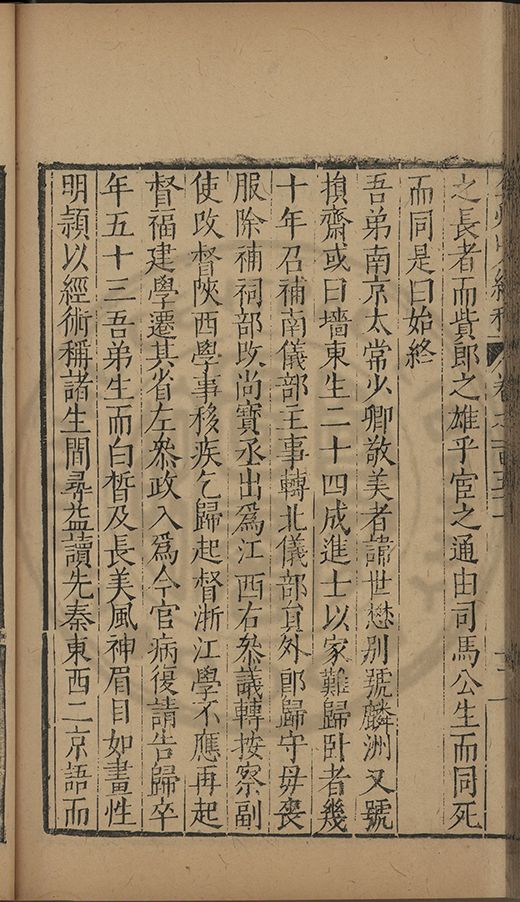 之長者而貲郎之雄乎宦之通由司馬公生而同死
而同是曰始終
吾弟南京太常少卿敬美者諱世懋別號麟洲又號
損齋或曰墻東生二十四成進士以家難歸卧者幾
十年召補南儀部主事轉北儀部員外郎歸守毋喪
服除補祠部攺尚寶丞出爲江西右叅議轉按察副
使攺督陜西學事移疾乞歸起督浙江學不應再起
督福建學遷其省左叅政入爲今官病復請告歸卒
年五十三吾弟生而白皙及長美風神眉目如畫性
明頴以經術稱諸生間尋益讀先秦東西二京語而